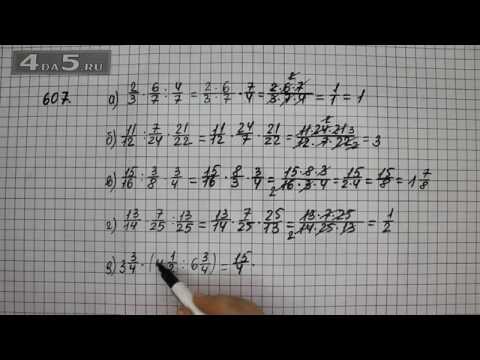 4DA5.RU
607. а) 2/3 · 6/7 : 4/7 = 2·6/3·7 · 7/4 = 2·6·7/3·7·4 = 1/1 = 1
б) 11/12 : 7/24 · 21/22 = 11/12 · 24/7 · 21/22 = 11·24·21/12·7·22 = 3
в) 15/16 : 3/8 · 3/4 = 15/16 · 8/3 · 3/4 = 15·8·3/16·3·4 = 15/2·4 = 15/8 = 1 7/8
г) 13/14 · 7/25 : 13/25 = 13/14 · 7/25 · 25/13 = 13·7·25/14·25·13 = 1/2
д) 3 3/4 · ( 1/2 : 6 3/4 ) = 15/4 ·